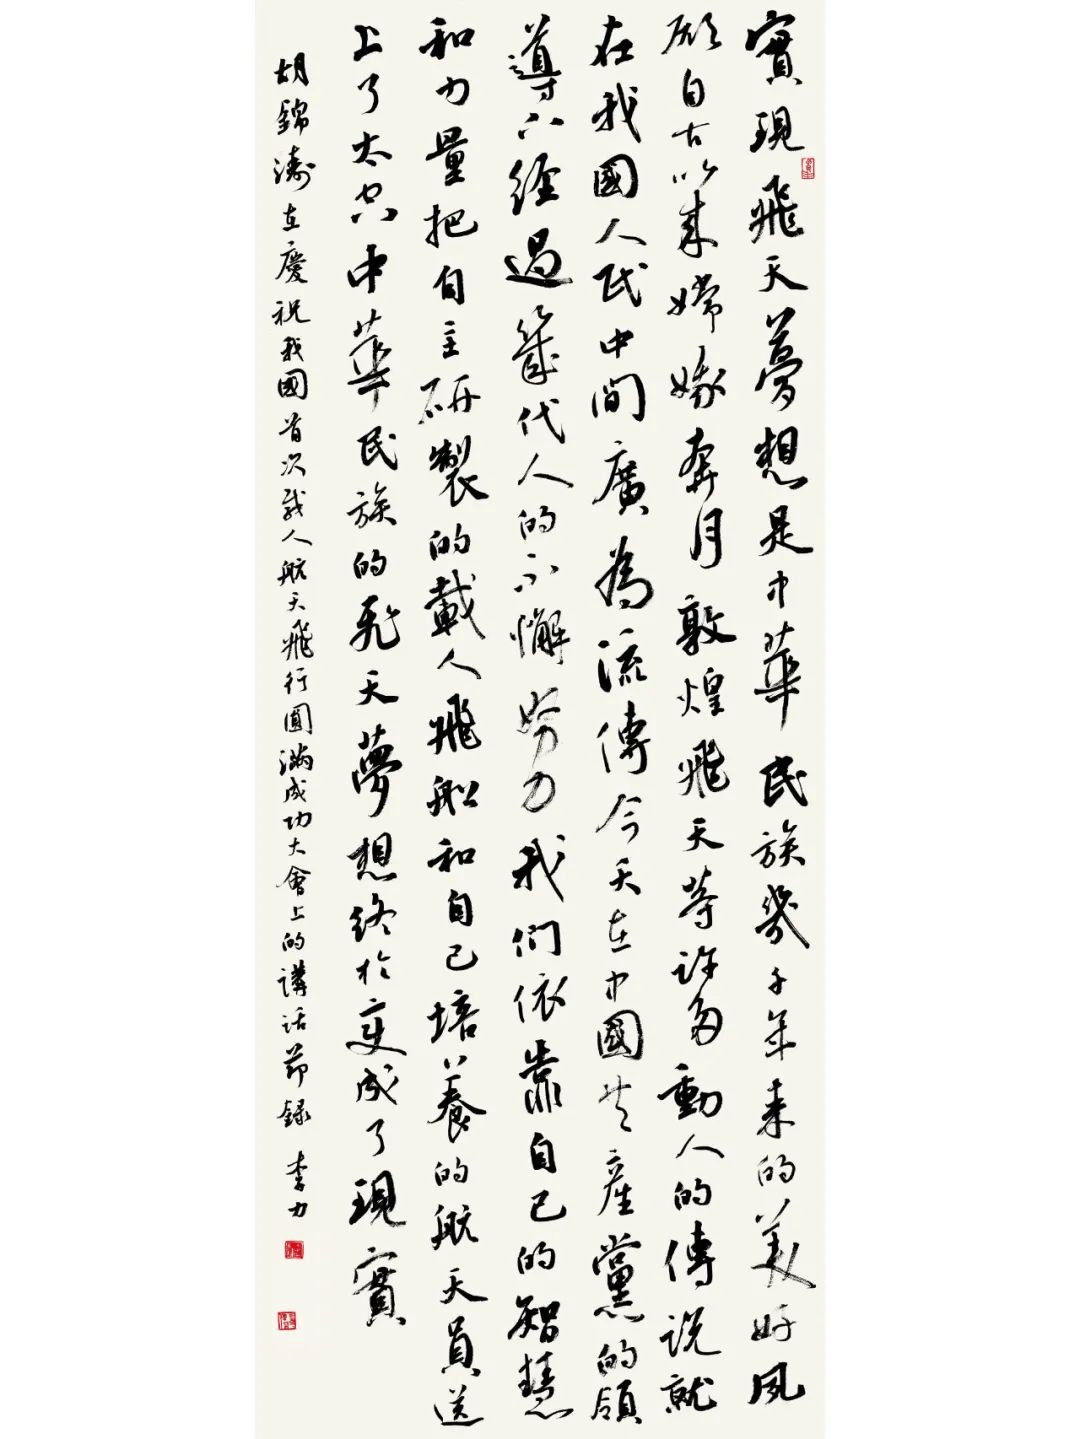 實現飛天夢想是中華民族幾千年来的美好夙
願自古以来嫦娥奔月敦煌飛天等許多動人的傳説就
在我國人民中間廣為流傳今天在中國共産黨的領
導下經過幾代人的不懈努力我們依靠自己的智慧
和力量把自主研製的載人飛船和自己培養的航天員送
上了太空中華民族的飛天夢想終於變成了現實
胡錦濤在慶祝我國首次載人航天飛行圓滿成功大會上的講話節録 李力